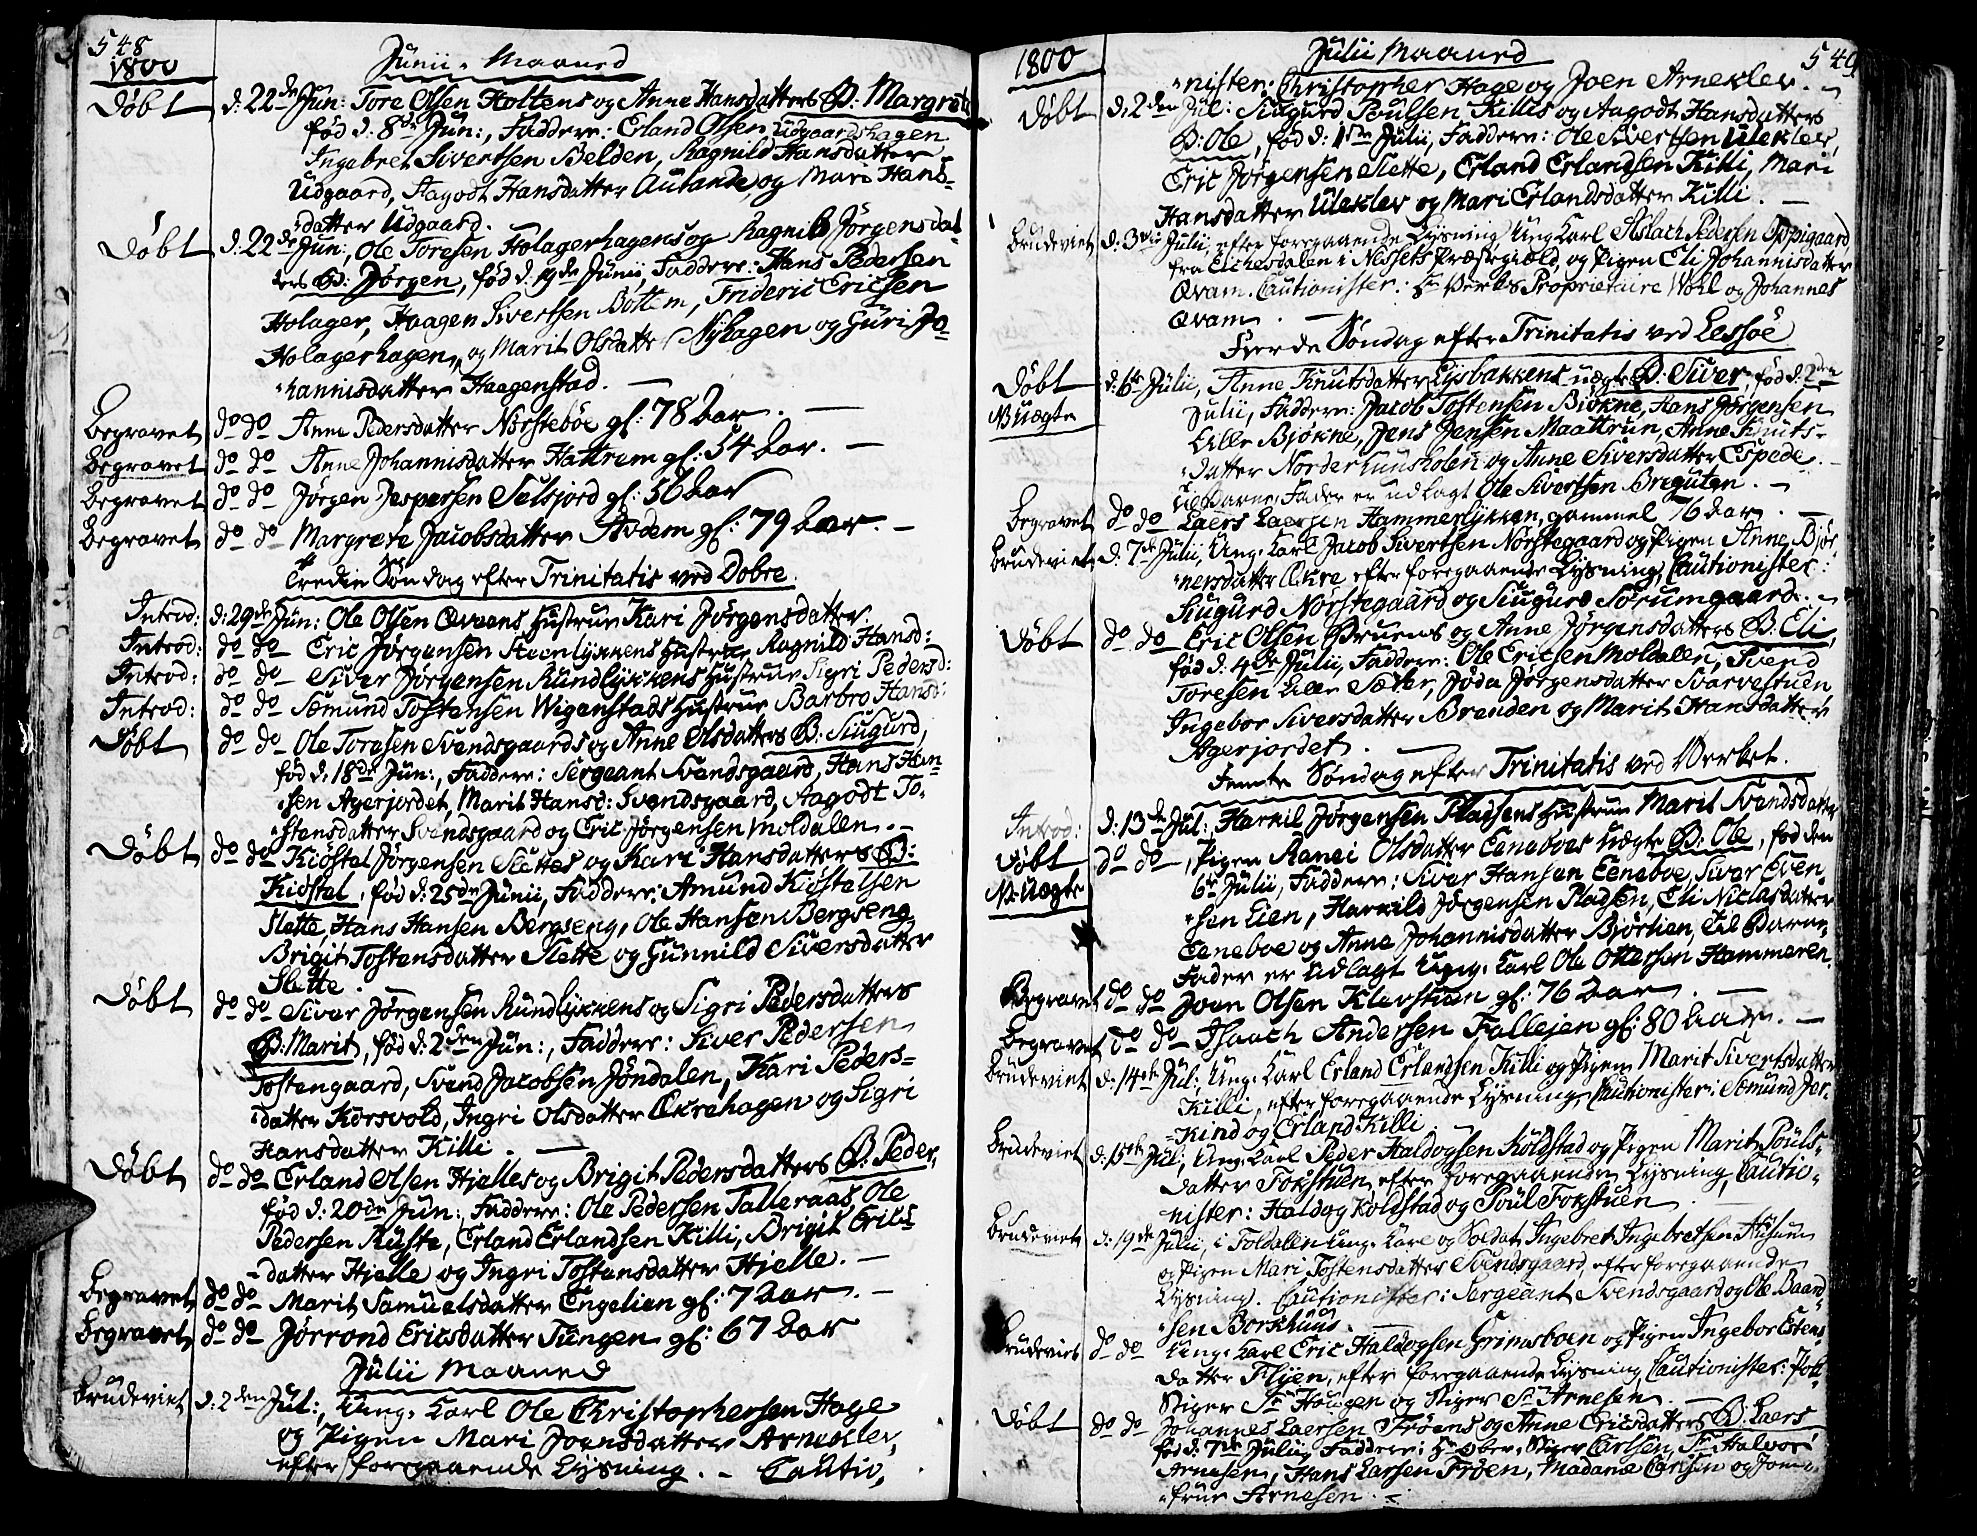 548
1800
Junii Maaned
Døbt d: 22de Jun: Tore Olsen Holtens og Anne Hansdatters B: Margrete
fød d: 8de Jun:, Faddere: Erland Olsen Udgaardshagen
Ingebret Sivertsen Belden, Ragnild Hansdatter
Udgaard, Aagodt Hansdatter Aulande, og Mari Hans-
datter Udgaard.
Døbt d: 22de Jun:, Ole Toresen Holagerhagens og Ragnild Jørgensdat-
ters B: Jørgen, fød d: 19de Junii, Faddere: Hans Pedersen
Holager, Haagen Sivertsen Bottem, Frideric Ericsen
Holagerhagen, og Marit Olsdatter Nyhagen og Guri Jo-
hannisdatter Haagenstad.
Begravet do do Anne Pedersdatter Norsteböe gl: 78 Aar.
Begravet do do Anne Johannisdatter Hattrem gl: 54 Aar.
Begravet do do Jørgen Jespersen Selsjord gl: 56 Aar
Begravet do do Margrete Jacobsdatter Avdem gl: 79 Aar.
Tredie Søndag efter Trinitatis ved Dobre.
Introd: d: 29de Jun: Ole Olsen Qvams Hustrue Kari Jørgensdatter.
Introd: do do Eric Jørgensen Steenlykkens Hustrue Ragnild Hansd:
Introd: do do Siver Jørgensen Rundlykkens Hustrue Sigri Pedersd:
Introd: do do Sæmund Tostensen Wigenstads Hustrue Barbro Hansd:
Døbt do do Ole Toresen Svendsgaards og Anne Olsdatters B: Siugurd,
fød d: 18de Jun:, Faddere: Sergeant Svendsgaard, Hans Han-
sen Agerjordet, Marit Hansd: Svendsgaard, Aagodt To-
stensdatter Svendsgaard og Eric Jørgensen Moldalen.
Døbt do do Kiöstel Jørgensen Slettes og Kari Hansdatters B:
Kiöstel, fød d: 25de Junii, Faddere: Amund Kiöstelsen
Slette, Hans Hansen Bergseng, Ole Hansen Bergseng,
Brigit Tostensdatter Slette og Gunnild Siversdatter
Slette.
Døbt do do Siver Jørgensen Rundlykkens og Sigri Pedersdatters
B: Marit, fød d: 2den Jun:, Faddere: Siver Pedersen
Tostengaard, Svend Jacobsen Jöndalen, Kari Peders-
datter Korsvold, Ingri Olsdatter Œkrehagen og Sigri
Hansdatter Killi.
Døbt do do Erland Olsen Hjelles og Brigit Pedersdatters B: Peder,
fød d: 20de Jun:, Faddere: Ole Pedersen Talleraas, Ole
Pedersen Ruste, Erland Erlandsen Killi, Brigit Erics-
datter Hjelle og Ingri Tostensdatter Hjelle.
Begravet do do Marit Samuelsdatter Engelien gl: 7 Aar.
Begravet do do Jörrond Ericsdatter Tungen gl: 67 Aar
Julii Maaned
Brudeviet d: 2den Jul:, Ung. Karl Ole Christophersen Hage
og Pigen Mari Joensdatter Arneklev,
efter foregaaende Lysning. Cautio-
1800
Julii Maaned
549
nister: Christopher Hage og Joen Arneklev.
Døbt d: 2den Jul: Siugurd Poulsen Killes og Aagodt Hansdatters
B: Ole, fød d: 1ste Julii, Faddere: Ole Sivertsen Uleklev,
Eric Jørgensen Slette, Erland Erlandsen Killi, Mari
Hansdatter Uleklev og Mari Erlandsdatter Killi.
Brudeviet d: 3die Julii, efter foregaaende Lysning, Ung Karl Aslach Pedersen Oppigaard
fra Eichesdalen i Nessets Præstegield, og Pigen Eli Johannisdatter
Qvam. Cautionister: Hr Verks Proprietaire Wohl og Johannes
Qvam.
Fierde Søndag efter Trinitatis ved Lessöe
Døbt d: 6te Julii, Anne Knutsdatter Lysbakkens uægte B: Siver, fød d: 2den
B: Uægte Julii, Faddere: Jacob Tostensen Biökne, Hans Jørgensen
Lille Bjökne, Jens Jensen Maattrun, Anne Knuts-
datter Norderhuusholen og Anne Siversdatter Espede.
Til Barne-Fader er udlagt Ole Sivertsen Breguten.
Begravet do do Laers Laersen Hammerlykken, gammel 76 Aar.
Brudeviet d: 7de Julii, Ung. Karl Jacob Sivertsen Norstegaard og Pigen Anne Bjør-
nersdatter Œkre efter foregaaende Lysning, Cautionister:
Siugurd Norstegaard og Siugurd Sörumgaard.
Døbt do do Eric Olsen Bruens og Anne Jørgensdatters B: Eli,
fød d: 4de Julii, Faddere: Ole Ericsen Moldalen, Svend
Toresen Lille Sæter, Joda Jørgensdatter Svarvestuen,
Ingebor Siversdatter Brenden og Marit Hansdatter
Agerjordet.
Femte Søndag efter Trinitatis ved Verket.
Introd: d: 13de Jul:, Harkil Jørgensen Pladsens Hustrue Marit Svendsdatter
Døbt do do, Pigen Ranei Olsdatter Eeneboes uægte B: Ole, fød den
B: Uægte 6te Julii, Faddere: Siver Hansen Eeneboe, Siver Even-
sen Lien, Harkild Jørgensen Pladsen, Eli Niclasdatter
Eeneboe og Anne Johannisdatter Bjørlien, Til Barne-
Fader er udlagt Ung. Karl Ole Ottersen Hammeren.
Begravet do do Joen Olsen Klevstuen gl: 76 Aar.
Begravet do do Isaach Andersen Fallejen gl: 80 Aar.
Brudeviet d: 14de Jul:, Ung. Karl Erland Erlandsen Killi og Pigen Marit Sivertsdatter
Killi, efter foregaaende Lysning, Cautionister: Sæmund Jer-
kind og Erland Killi.
Brudeviet d: 15de Jul:, Ung. Karl Peder Haldogsen Koldstad og Pigen Marit Pouls-
datter Fokstuen, efter foregaaende Lysning, Cautio-
nister: Haldog Koldstad og Poul Fokstuen
Brudeviet d: 19de Julii, i Foldalen Ung. Karl og Soldat Ingebret Ingebretsen Husum
og Pigen Mari Tostensdatter Svendsgaard, efter foregaaende
Lysning. Cautionister: Sergeant Svendsgaard og Ole Baard-
sen Borkhuus.
Brudeviet do do Ung. Karl Eric Haldogsen Grimsboen og Pigen Ingebor Estens
datter Flyen, efter foregaaende Lysning, Cautionister:
Stiger Sr Hougen og Stiger Sr Arnesen
Døbt do do Johannes Laersen Frøens og Anne Ericsdatters B: Laers
fød d: 7de Julii, Faddere: Hr Ober-Stiger Carlsen, Sr Halvor
Arnesen, Hans Larsen Frøen, Madame Carlsen og Jom-
frue Arnesen.